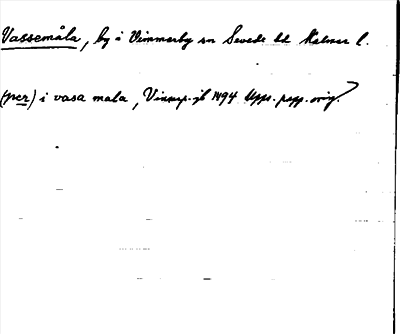 Vassemåla, by i Vimmerby sn Sevede hd Kalmar l.
(per) i vasa mala, 1494 Upps. papp. orig.